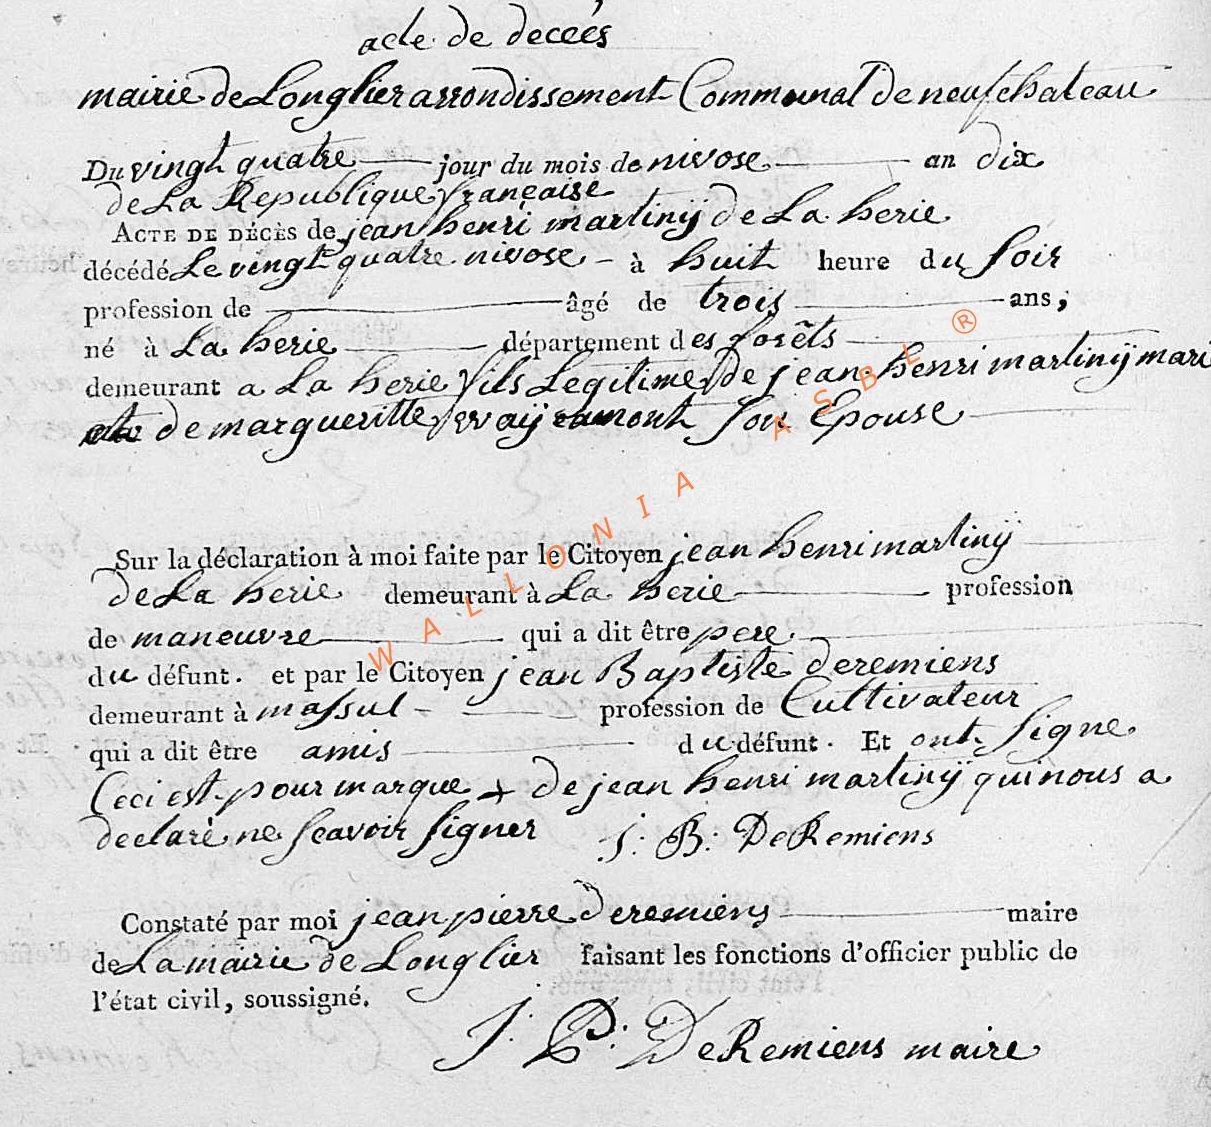 acte de deceés
mairie de Longlier arrondissement Communal de neufchateau
Du vingt quatre jour du mois de nivose an dix
de La Republique française
ACTE DE DÉCÈS de jean henri martinÿ de La herie
décédé Le vingt quatre nivose - à huit heure du soir
profession de âgé de trois ans;
né à La herie département des forêts
demeurant a La herie fils Legitime de jean henri martinÿ mari
de margueritte son Epouse
Sur la déclaration à moi faite par le Citoyen jean henri martinÿ
de La herie demeurant à La herie profession
de maneuvre qui a dit être pere
du défunt. et par le Citoyen jean Baptiste deremiens
demeurant à massul - profession de Cultivateur
qui a dit être amis du défunt. Et ont signe
Ceci est pour marque + de jean henri martinÿ qui nous a
declaré ne scavoir signer J: B: DeRemiens
Constaté par moi jean pierre deremiens maire
de La mairie de Longlier faisant les fonctions d'officier public de
l'état civil, soussigné.
J: P: DeRemiens maire
WALLONIA ASBL ®